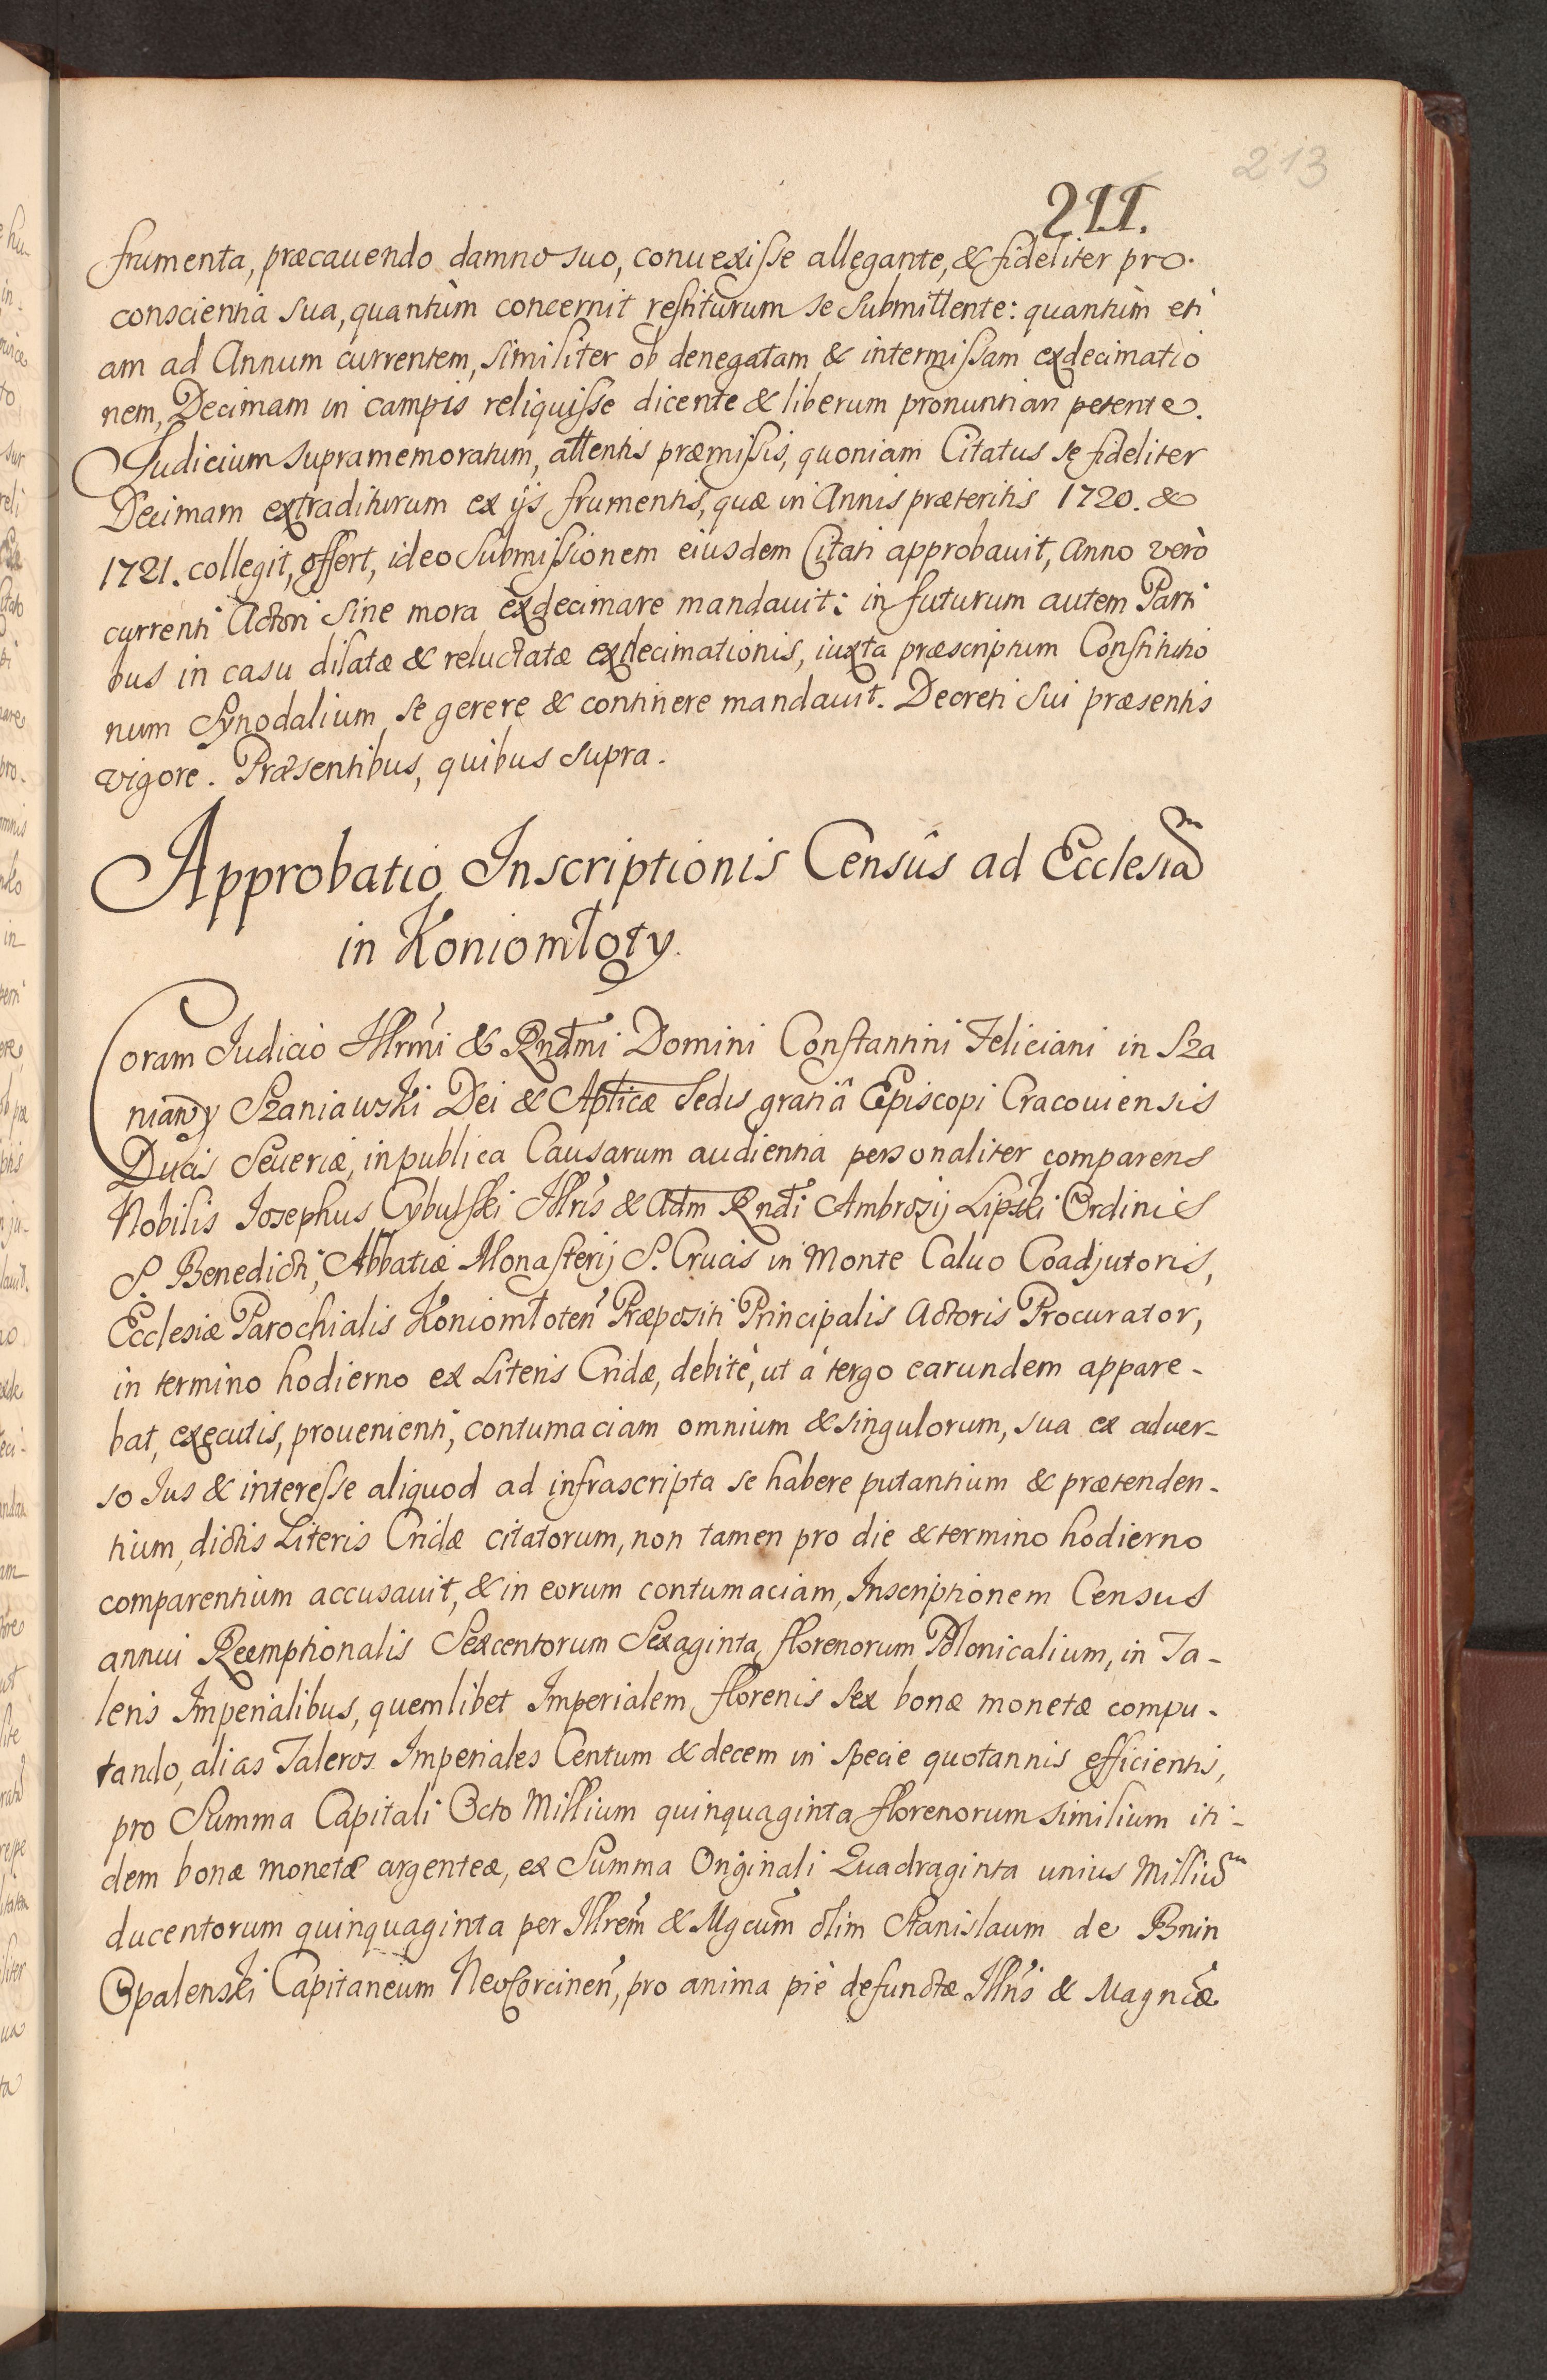 213
211.
frumenta, præcauendo damno suo, conuexiſse allegante, & fideliter pro
conscientia sua, quantùm concernit restiturum se submittente: quantùm eti
am ad Annum currentem, similiter ob denegatam & intermiſsam exdecimatio
nem, Decimam in campis reliquiſse dicente & liberum pronuntiari petente.
Iudicium supramemoratum, attentis præmiſsis, quoniam Citatus se fideliter
Decimam extraditurum ex ijs frumentis, quæ in Annis præteritis 1720. &
1721. collegit, offert, ideo submiſsionem eiusdem Citati approbauit, Anno verò
currenti Actori sine mora exdecimare mandauit: in futurum autem Parti
bus in casu dilatæ & reluctatæ exdecimationis, iuxta præscriptum Constitutio
num Synodalium se gerere & continere mandauit. Decreti sui præsentis
vigore. Præsentibus, quibus supra.
Approbatio Inscriptionis Censûs ad Ecclesiam
in Koniomłoty.
Coram Iudicio Illrmi & Rndmi Domini Constantini Feliciani in Sza
niawy Szaniawski Dei & Aplicæ Sedis gratiâ Episcopi Cracouiensis
Ducis Seueriæ, in publica Causarum audientia personaliter comparens
Nobilis Iosephus Cybulski Illris & Adm Rndi Ambrosij Lipski Ordinis
S. Benedicti, Abbatiæ Monasterij S. Crucis in Monte Caluo Coadjutoris,
Ecclesiæ Parochialis Koniomłoten Præpositi Principalis Actoris Procurator,
in termino hodierno ex Literis Cridæ, debitè, ut à tergo earundem appare-
bat, executis, prouenienti, contumaciam omnium & singulorum, sua ex aduer-
so Ius & intereſse aliquod ad infrascripta se habere putantium & prætenden-
tium, dictis Literis Cridæ citatorum, non tamen pro die & termino hodierno
comparentium accusauit, & in eorum contumaciam, Inscriptionem Census
annui Reemptionalis Sexcentorum Sexaginta florenorum Polonicalium, in Ta-
leris Imperialibus, quemlibet Imperialem florenis sex bonæ monetæ compu-
tando, alias Taleros Imperiales Centum & decem in specie quotannis efficientis,
pro Summa Capitali Octo Millium quinquaginta florenorum similium iti-
dem bonæ monetæ argenteæ, ex Summa Originali Quadraginta unius Millium
ducentorum quinquaginta per Illrem & Mgcum olim Stanislaum de Bnin
Opalenski Capitaneum Neocorcinen, pro anima piè defunctæ Illris & Magncæ